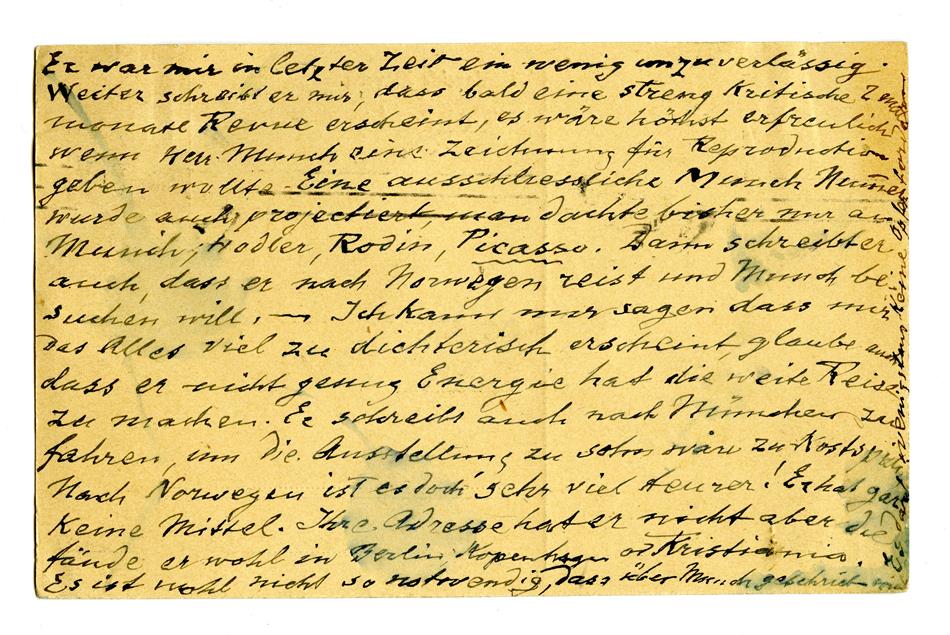 Er war mir in letzter Zeit ein wenig unzuverlässig.
Weiter schreibt er mir, dass bald eine streng Kritische
monats Revue erscheint, es wäre höchst erfreulich
wenn Herr Munch eine Zeichnung für Reproduction
geben wollte. Eine ausschliessliche Munch Numer
wurde auch projectiert, man dachte bisher nur an
Munch, Hodler, Rodin, Picasso. Dann schreibt er
auch, dass er nach Norwegen reist und Munch be
suchen will. — Ich kann nur sagen dass mir
das Alles viel zu dichterisch erscheint, glaube auch
dass er nicht genug Energie hat die weite Reise
zu machen. Er schreibt auch nach München zu
fahren, um die Ausstellung zu sehn wäre zu Kostspielig
Nach Norwegen ist es doch sehr viel teurer! Er hat gar
Keine Mittel. Ihre Adresse hat er nicht aber die
fände er wohl in Berlin Kopenhagen od Kristiania.
Es ist wohl nicht so notwendig, dass über Munch geschrieben
wenigstens Keine Opfer